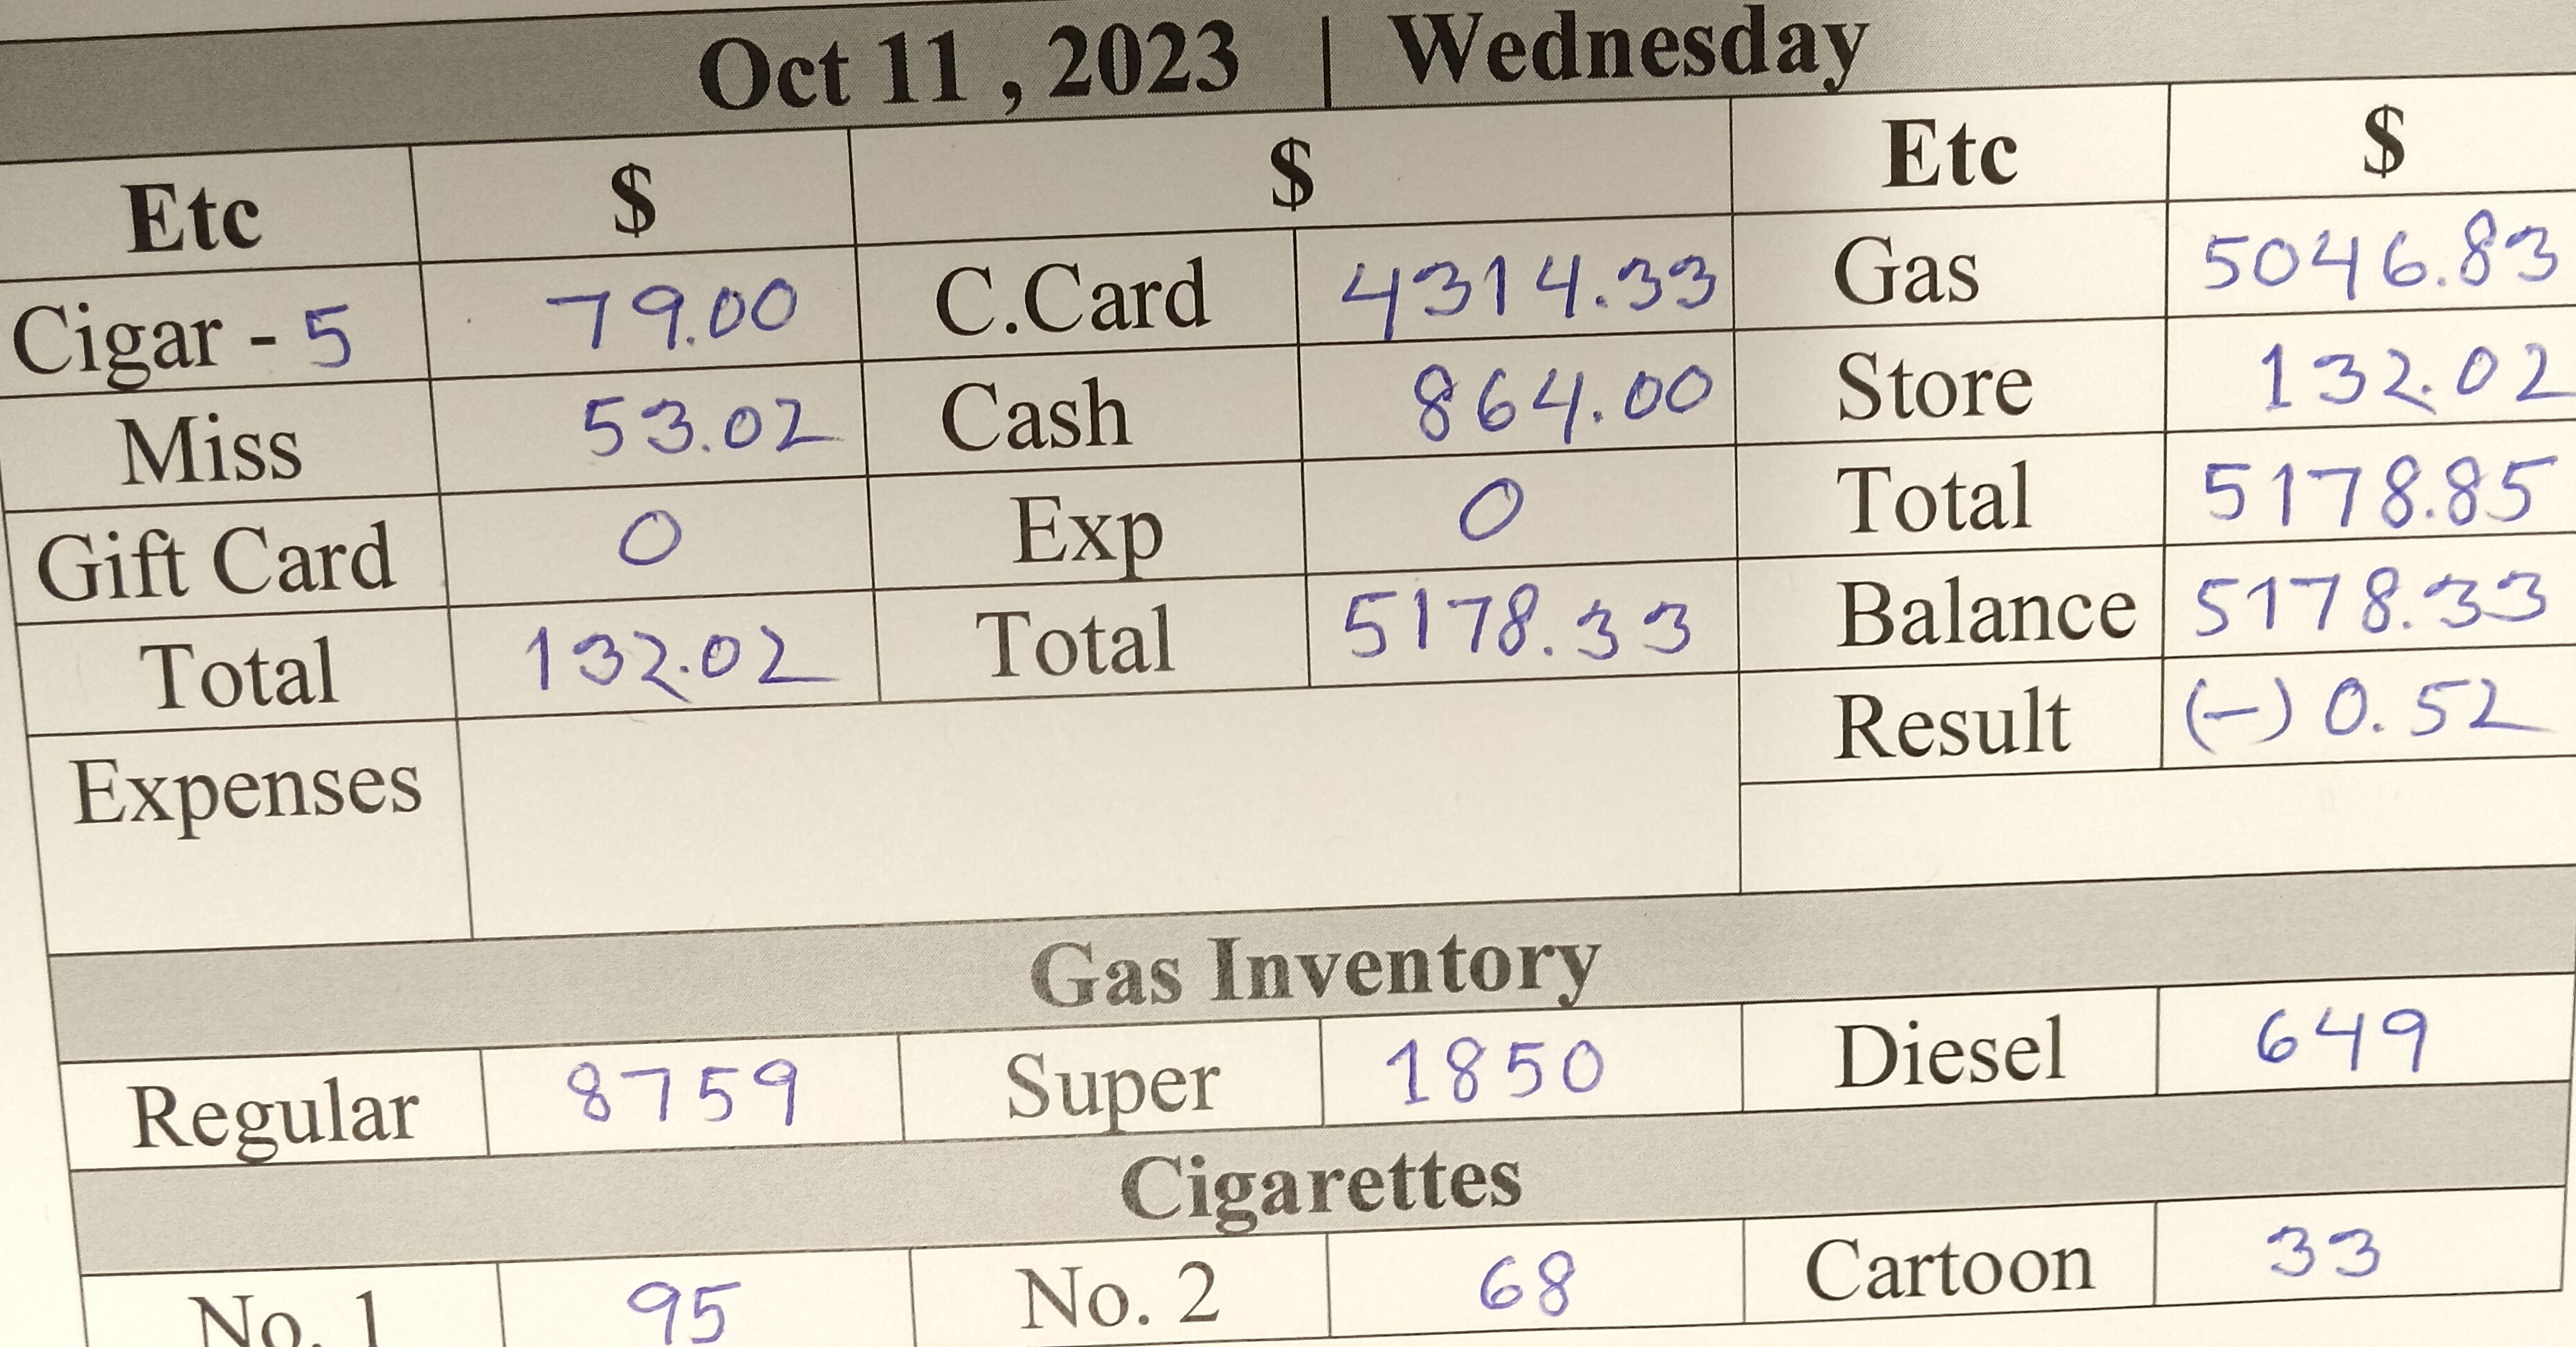 Oct 11 , 2023 | Wednesday
Etc $ $ Etc $
Cigar - 5 79.00 C.Card 4314.33 Gas 5046.83
Miss 53.02 Cash 864.00 Store 132.02
Gift Card 0 Exp 0 Total 5178.85
Total 132.02 Total 5178.33 Balance 5178.33
Expenses Result (-) 0.52
Gas Inventory
Regular 8759 Super 1850 Diesel 649
Cigarettes
No. 1 95 No. 2 68 Cartoon 33